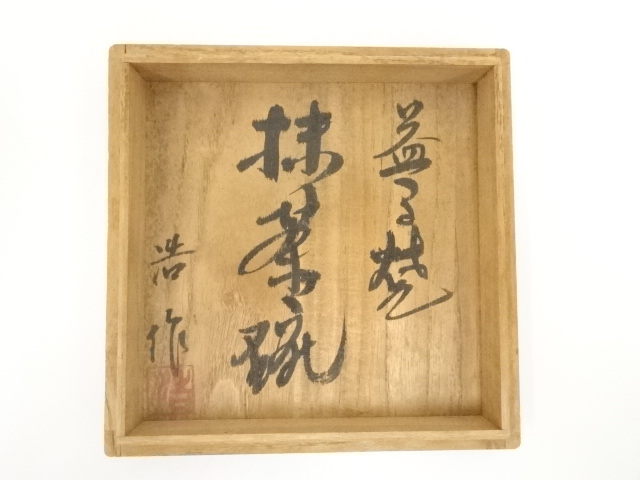 益子焼
抹茶碗
浩作